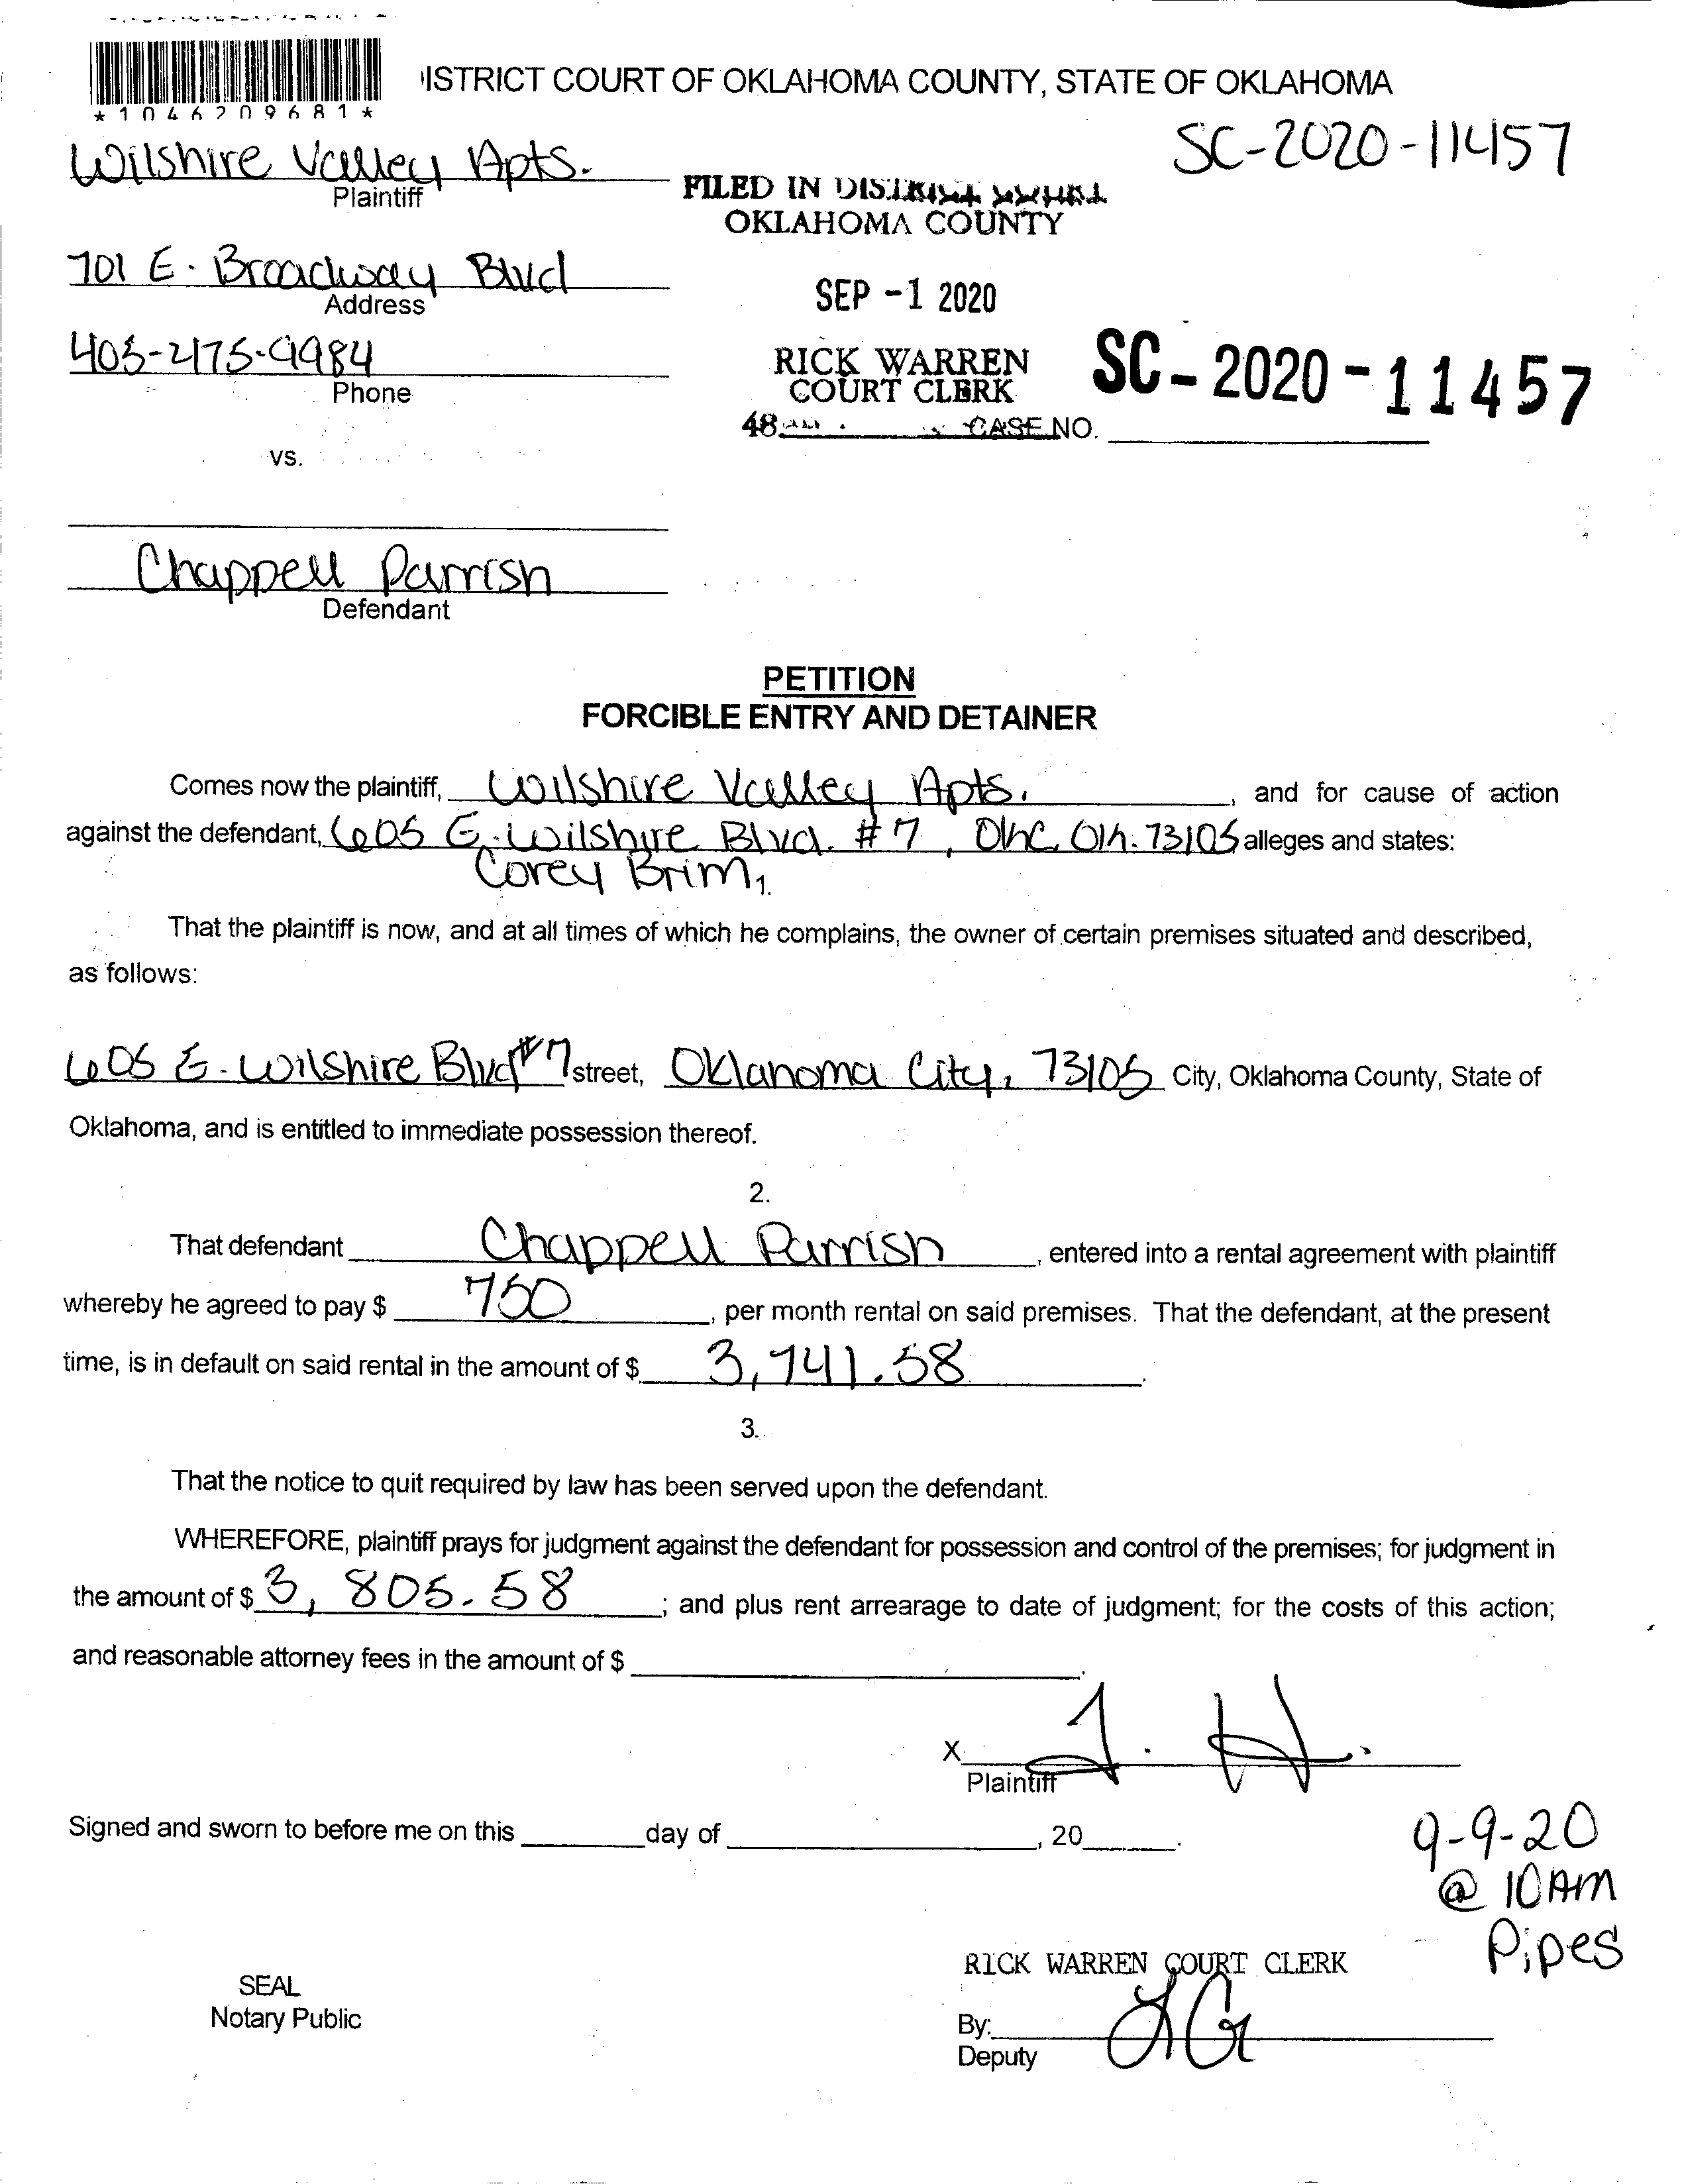 ISTRICT COURT OF OKLAHOMA COUNTY, STATE OF OKLAHOMA
*1046209681*
SC-2020-11457
Wilshire Valley Apts.
Plaintiff
FILED IN DISTRICT COURT
OKLAHOMA COUNTY
701 E. Broadway Blvd
Address
SEP -1 2020
405-475-9984
Phone
RICK WARREN
COURT CLERK
SC-2020-11457
48
CASE NO.
vs.
Chappell Parrish
Defendant
PETITION
FORCIBLE ENTRY AND DETAINER
Comes now the plaintiff, Wilshire Valley Apts. , and for cause of action
against the defendant, 605 E. Wilshire Blvd. #7, OKC, OK. 73105 alleges and states:
Corey Brim
1.
That the plaintiff is now, and at all times of which he complains, the owner of certain premises situated and described,
as follows:
605 E. Wilshire Blvd #7 street, Oklahoma City, 73105 City, Oklahoma County, State of
Oklahoma, and is entitled to immediate possession thereof.
2.
That defendant Chappell Parrish , entered into a rental agreement with plaintiff
whereby he agreed to pay $ 750 , per month rental on said premises. That the defendant, at the present
time, is in default on said rental in the amount of $ 3,741.58 .
3.
That the notice to quit required by law has been served upon the defendant.
WHEREFORE, plaintiff prays for judgment against the defendant for possession and control of the premises; for judgment in
the amount of $ 3,805.58 ; and plus rent arrearage to date of judgment; for the costs of this action;
and reasonable attorney fees in the amount of $ .
X
Plaintiff
Signed and sworn to before me on this day of , 20 .
9-9-20
@ 10AM
Pipes
RICK WARREN COURT CLERK
SEAL
Notary Public
By:
Deputy